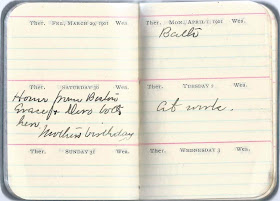 Ther. FRI. MARCH 29, 1901 Wea.
Ther. SATURDAY 30 Wea.
Home from
Grace & both
here
Mothers birthday
Ther. SUNDAY 31 Wea.
Ther. MON. APRIL 1, 1901 Wea.
Balto
Ther. TUESDAY 2 Wea.
At work.
Ther. WEDNESDAY 3 Wea.